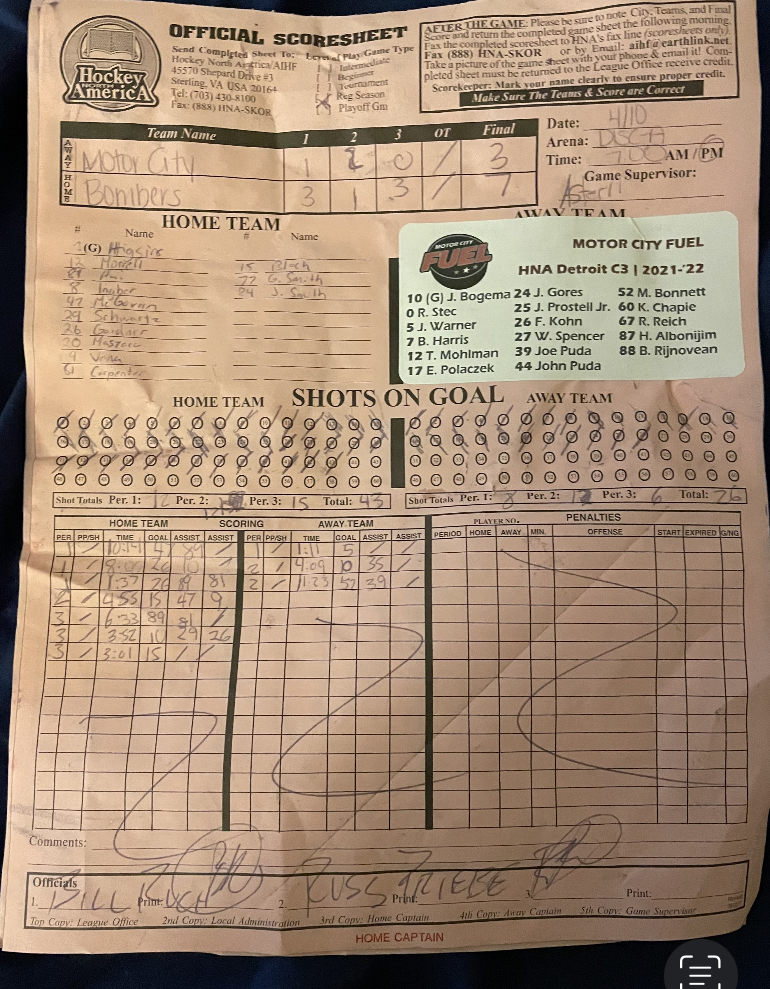 Hockey
NORTH
AMERICA
OFFICIAL SCORESHEET
Send Completed Sheet To:
Hockey North America/AIHF
45570 Shepard Drive #3
Sterling, VA USA 20164
Tel: (703) 430-8100
Fax: (888) HNA-SKOR
Level of Play/Game Type
[ ] Intermediate
[ ] Beginner
[ ] Tournament
Reg Season
Playoff Gm
AFTER THE GAME: Please be sure to note City, Teams, and Final
Score and return the completed game sheet the following morning.
Fax the completed scoresheet to HNA's fax line (scoresheets only).
Fax (888) HNA-SKOR or by Email: aihf@earthlink.net
Take a picture of the game sheet with your phone & email it! Com-
pleted sheet must be returned to the League Office receive credit.
Scorekeeper: Mark your name clearly to ensure proper credit.
Make Sure The Teams & Score are Correct
Team Name 1 2 3 OT Final
AWAY Motor City 1 2 0 / 3
HOME Bombers 3 1 3 / 7
Date: 4/10
Arena:
Time: 7:00 AM / PM
Game Supervisor:
HOME TEAM
# Name # Name
(G) Higgins
12 Morrell 15 Black
77 G. Smith
8 Ingber 84 J. Smith
97 McGovern
29 Schwartz
26 Gardner
20
9
51 Carpenter
AWAY TEAM
MOTOR CITY
FUEL
MOTOR CITY FUEL
HNA Detroit C3 | 2021-'22
10 (G) J. Bogema 24 J. Gores 52 M. Bonnett
0 R. Stec 25 J. Prostell Jr. 60 K. Chapie
5 J. Warner 26 F. Kohn 67 R. Reich
7 B. Harris 27 W. Spencer 87 H. Albonijim
12 T. Mohlman 39 Joe Puda 88 B. Rijnovean
17 E. Polaczek 44 John Puda
HOME TEAM SHOTS ON GOAL AWAY TEAM
Shot Totals Per. 1: 12 Per. 2: Per. 3: 15 Total: 43
Shot Totals Per. 1: 8 Per. 2: 12 Per. 3: 6 Total: 26
HOME TEAM SCORING AWAY TEAM PLAYER NO. PENALTIES
PER PP/SH TIME GOAL ASSIST ASSIST PER PP/SH TIME GOAL ASSIST ASSIST PERIOD HOME AWAY MIN. OFFENSE START EXPIRED G/NG
1 / 10:14 47 89 / 1 / 1:11 5 / /
1 / 26 10 / 2 / 4:09 10 35 /
1 / 1:37 26 19 81 2 / 11:23 52 39 /
2 / 4:55 15 47 9
3 / 6:33 89 81 /
3 / 3:52 10 29 26
3 / 3:01 15 / /
Comments:
Officials
1. BILL Print: 2. RUSS FRIEBE Print: 3. Print:
Top Copy: League Office 2nd Copy: Local Administration 3rd Copy: Home Captain 4th Copy: Away Captain 5th Copy: Game Supervisor
HOME CAPTAIN